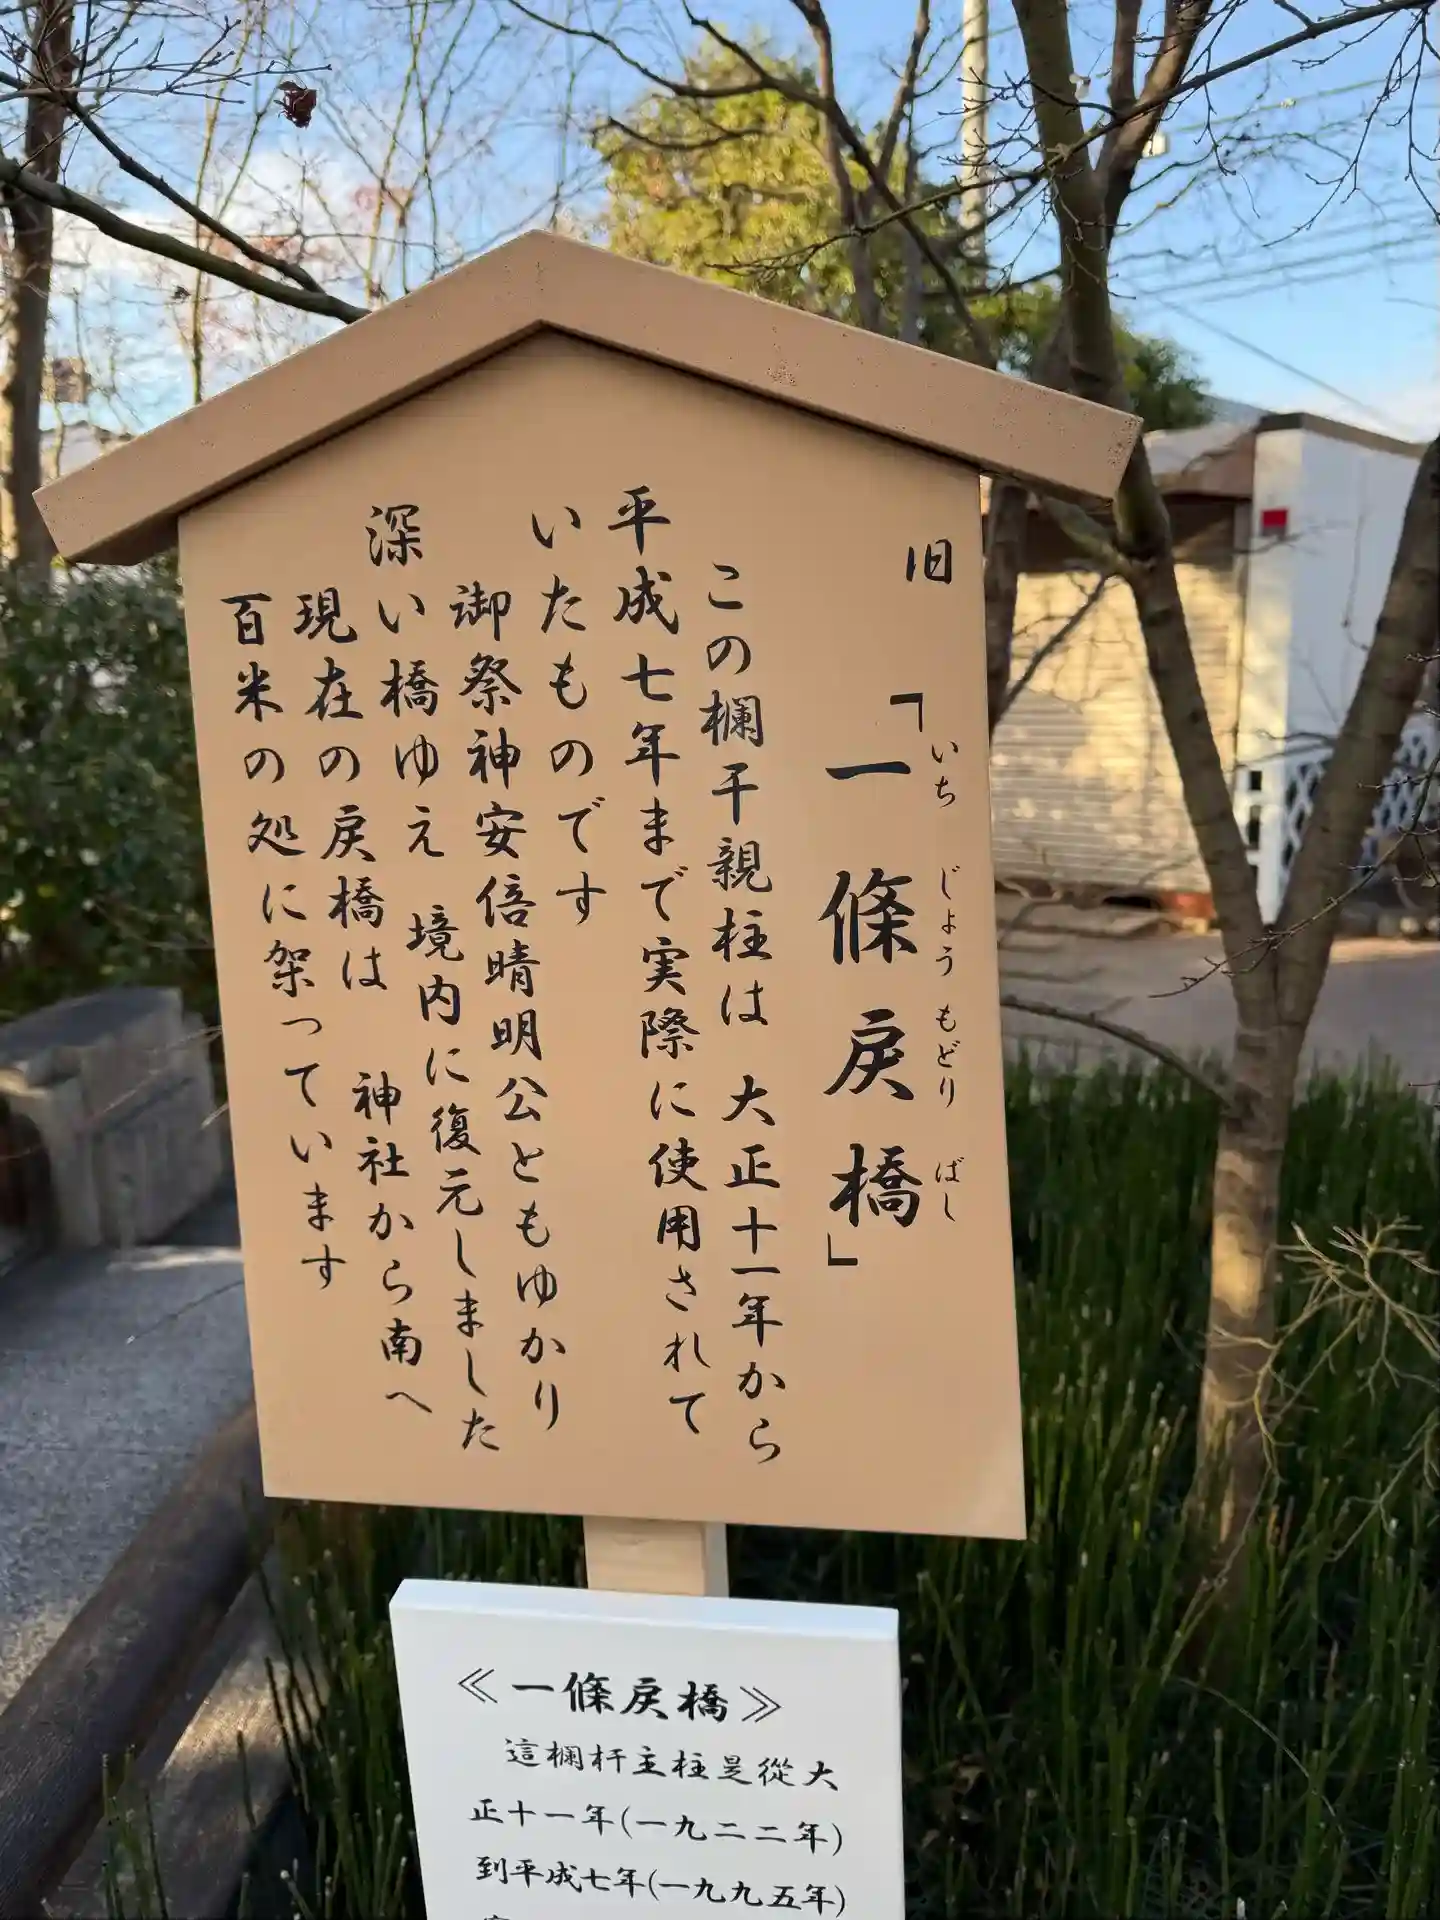 旧「一條戻橋」
いち じょう もどり ばし
この欄干親柱は 大正十一年から
平成七年まで実際に使用されて
いたものです
御祭神安倍晴明公ともゆかり
深い橋ゆえ 境内に復元しました
現在の戻橋は 神社から南へ
百米の処に架っています
≪一條戻橋≫
這欄杆主柱是從大
正十一年(一九二二年)
到平成七年(一九九五年)